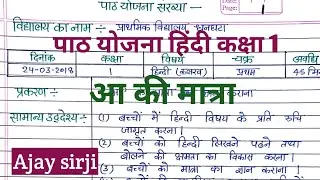 पाठ योजना संख्या -
Page
विद्यालय का नाम :- प्राथमिक विद्यालय,
पाठ योजना हिंदी कक्षा 1
दिनांक कक्षा विषय चक्र अवधि
24-03-2018 1 हिन्दी प्रथम 45 मि
प्रकरण :-
आ की मात्रा
सामान्य उद्देश्य :- (1) बच्चों में हिन्दी विषय के प्रति रुचि
जागृत करना।
(2) बच्चों को हिन्दी लिखने पढ़ने तथा
बोलने की क्षमता का विकास करना।
Ajay sirji
(3) बच्चों को मात्रा का ज्ञान कराना।